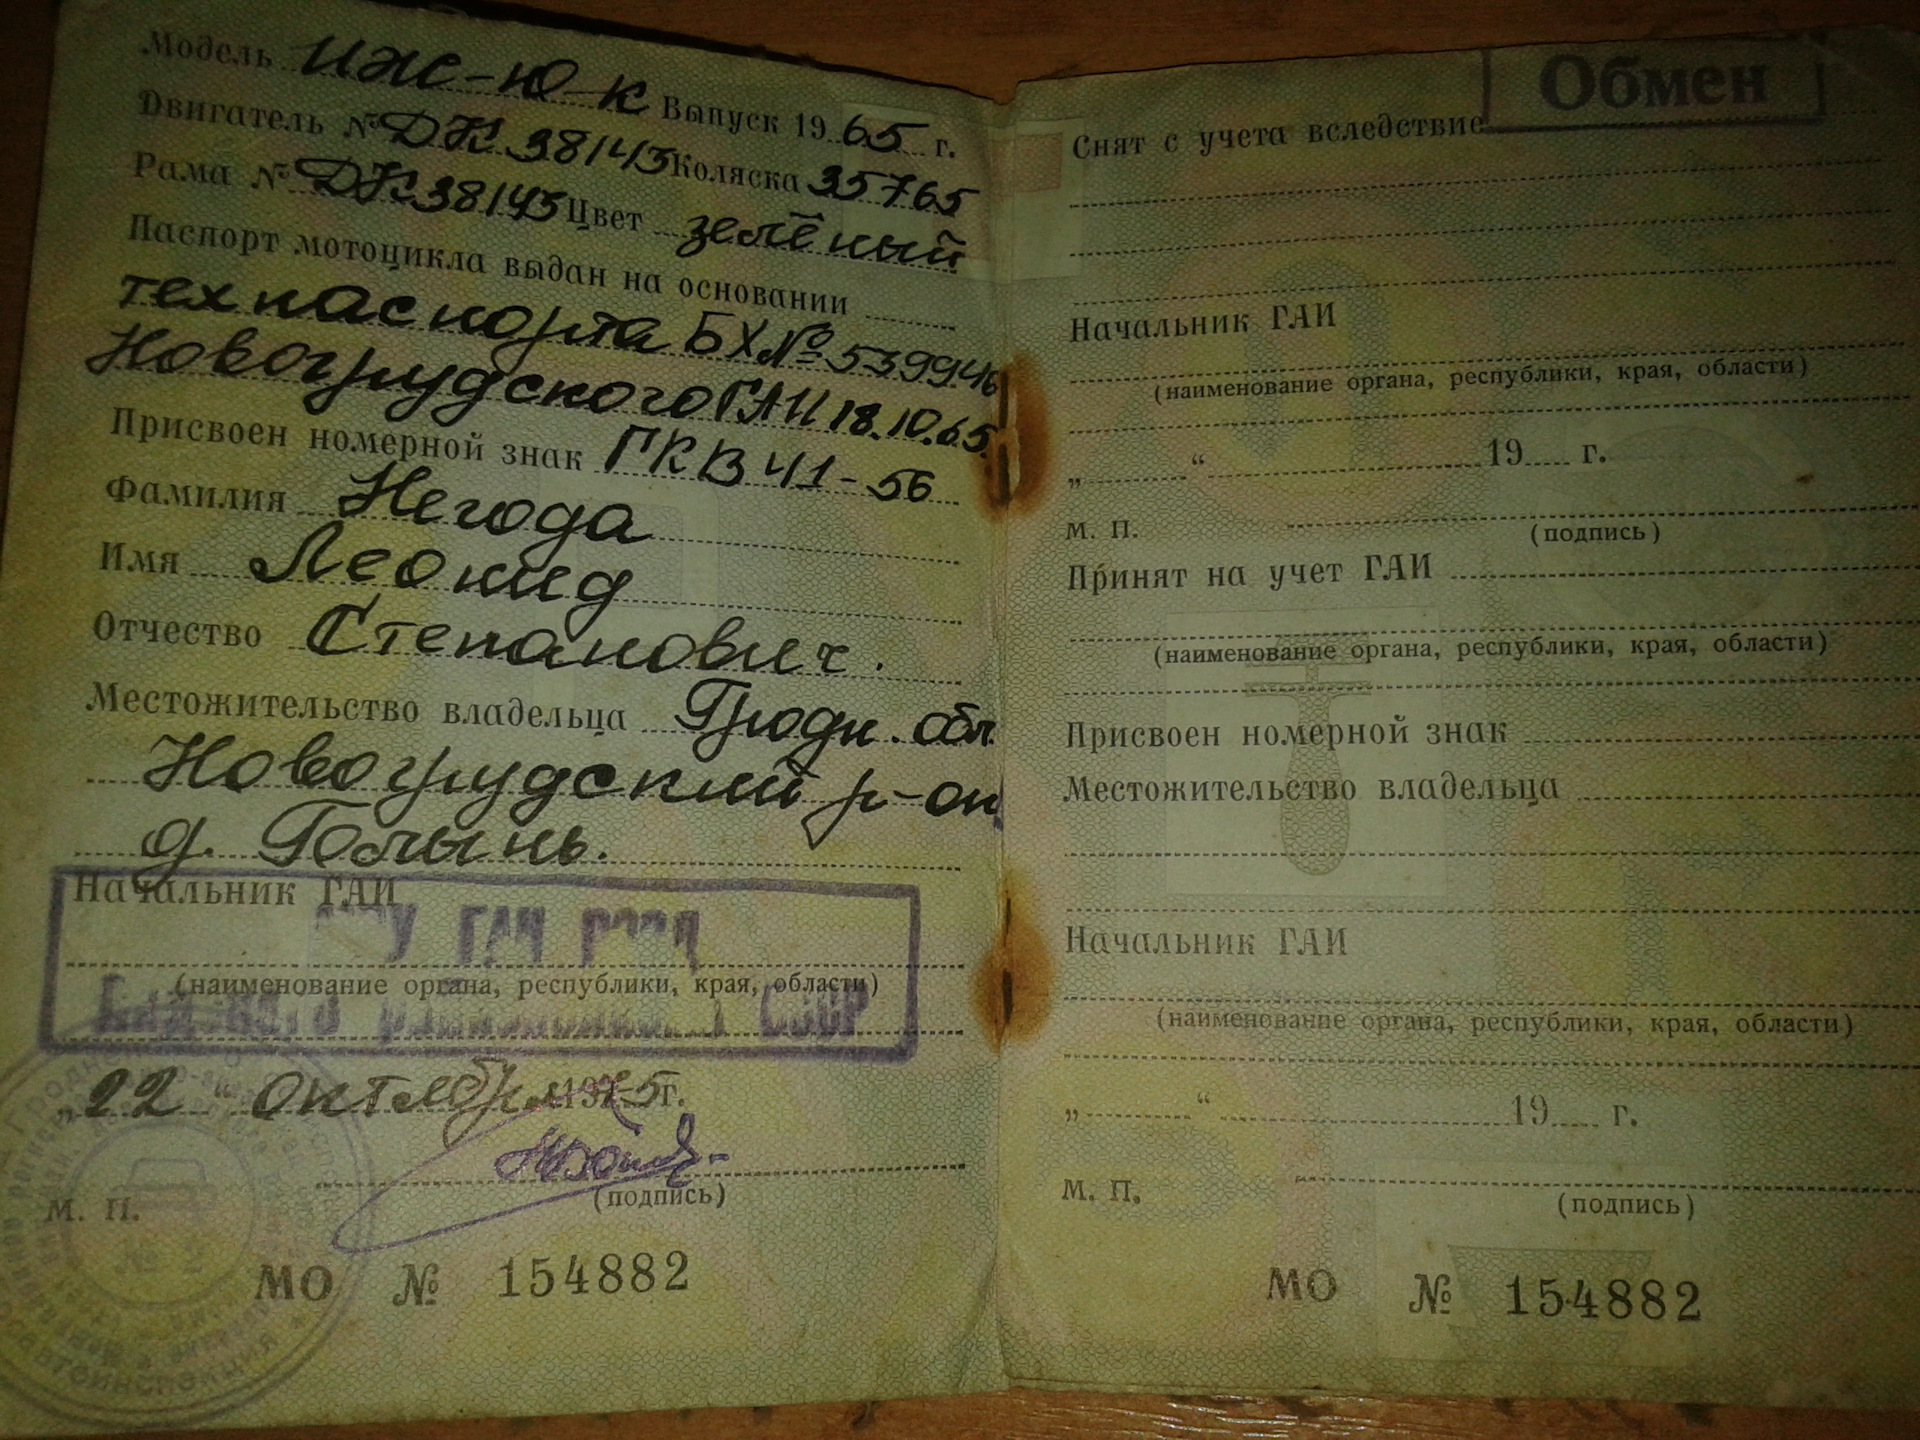 Модель ИЖ-Ю-К Выпуск 1965 г.
Двигатель № ДК 38143 Коляска 35765
Рама № ДК 38143 Цвет зелёный
Паспорт мотоцикла выдан на основании
техпаспорта БХ № 539946
Новогрудского ГАИ 18.10.65.
Присвоен номерной знак ГКВ 41-56
Фамилия Негода
Имя Леонид
Отчество Степанович.
Местожительство владельца Гродн. обл
Новогрудский р-он,
д. Голынь.
Начальник ГАИ
ГАИ
(наименование органа, республики, края, области)
СССР
„22“ октября 1975 г.
(подпись)
М. П.
МО № 154882
Обмен
Снят с учета вследствие
Начальник ГАИ
(наименование органа, республики, края, области)
„ “ 19 г.
М. П.
(подпись)
Принят на учет ГАИ
(наименование органа, республики, края, области)
Присвоен номерной знак
Местожительство владельца
Начальник ГАИ
(наименование органа, республики, края, области)
„ “ 19 г.
М. П.
(подпись)
МО № 154882